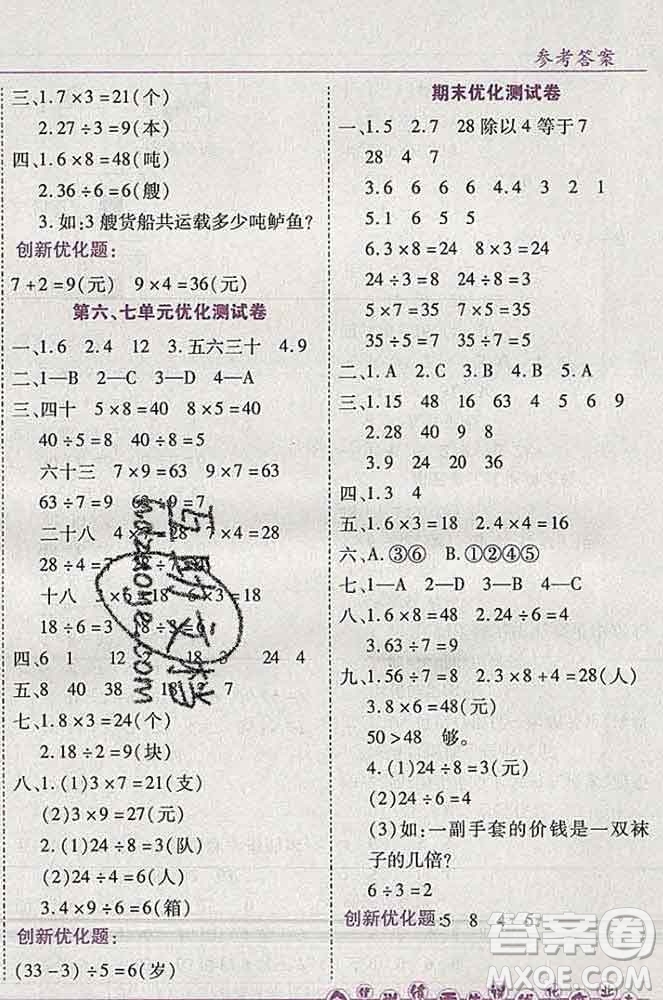 参考答案
三、1.7×3=21(个)
2.27÷3=9(本)
四、1.6×8=48(吨)
2.36÷6=6(艘)
3.如:3艘货船共运载多少吨鲈鱼?
创新优化题:
7+2=9(元) 9×4=36(元)
第六、七单元优化测试卷
一、1.6 2.4 12 3.五六三十 4.9
二、1—B 2—A 3—D 4—C
三、四十 5×8=40 8×5=40
40÷5=8 40÷8=5
六十三 7×9=63 9×7=63
63÷7=9 63÷9=7
二十八 4×7=28 7×4=28
28÷4=7 28÷7=4
十八 3×6=18 6×3=18
18÷6=3 18÷3=6
四、6 1 12 18 3 24 4
五、8 40 38 18 12 7
七、1.8×3=24(个)
2.18÷2=9(块)
八、1.(1)3×7=21(支)
(2)3×9=27(元)
2.(1)24÷8=3(队)
(2)24÷4=6(人)
3.4×9=36 36÷6=6(箱)
创新优化题:
(33-3)÷5=6(岁)
期末优化测试卷
一、1.5 2.7 28除以4等于7
28 4 7
3.6 6 6 6 4.24
5.1 6 5 5
6.3×8=24 8×3=24
24÷3=8 24÷8=3
5×7=35 7×5=35
35÷5=7 35÷7=5
二、1.A 2.C 3.B 4.B 5.A
三、1.15 48 16 63 4 5 6
2.28 40
3.9 24 20 36
四、1.3 4
五、1.6×3=18 2.4×4=16
六、A.③⑥ B.①②④⑤
七、1—C 2—D 3—A 4—B
八、1.6×8=48 2.24÷6=4
3.63÷7=9
九、1.56÷7=8 2.3×8=24(人)
3.8×6=48(元)
50>48 够。
4.(1)24÷8=3(元)
(2)24÷6=4
(3)如:一副手套的价钱是一双袜
子的几倍?
6÷3=2
创新优化题:5 8 4 5
互助文档
hdzuoye.com
答案圈
MXQE.COM